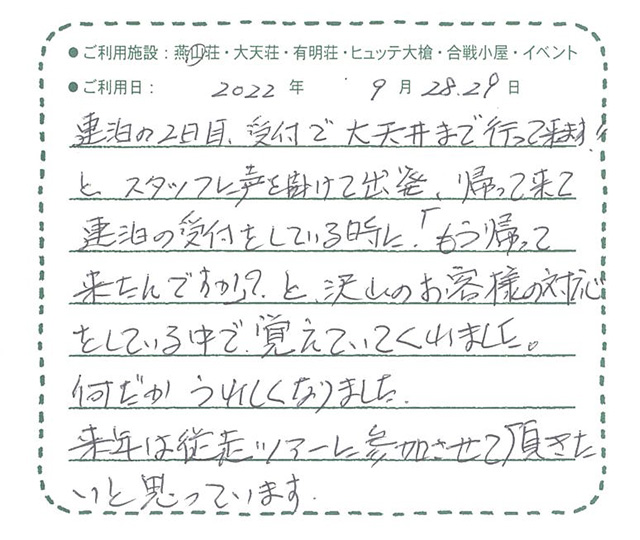 ● ご利用施設：燕山荘・大天荘・有明荘・ヒュッテ大槍・合戦小屋・イベント
● ご利用日： 2022 年 9 月 28.29 日
連泊の2日目、受付で大天井まで行って来ます
と、スタッフに声を掛けて出発、帰って来て
連泊の受付をしている時に、「もう帰って
来たんですか!?と、沢山のお客様の対応
をしている中で、覚えていてくれました。
何だかうれしくなりました.
来年は従走ツアーに参加させて頂きた
いと思っています.